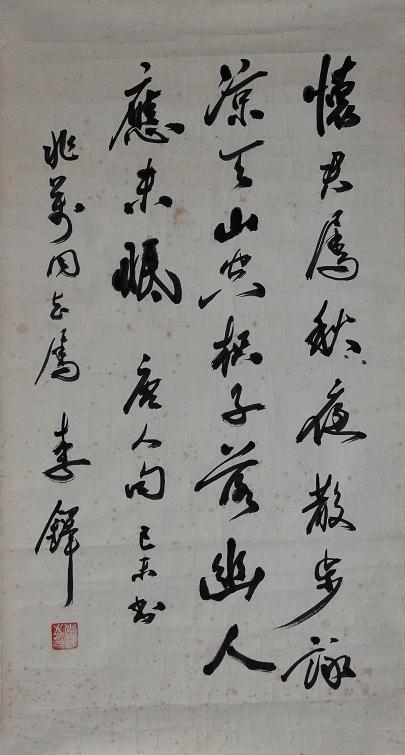 懷君属秋夜散步詠
涼天山空松子落幽人
應未眠 唐人句 己未书
兆萬同志属 李鐸